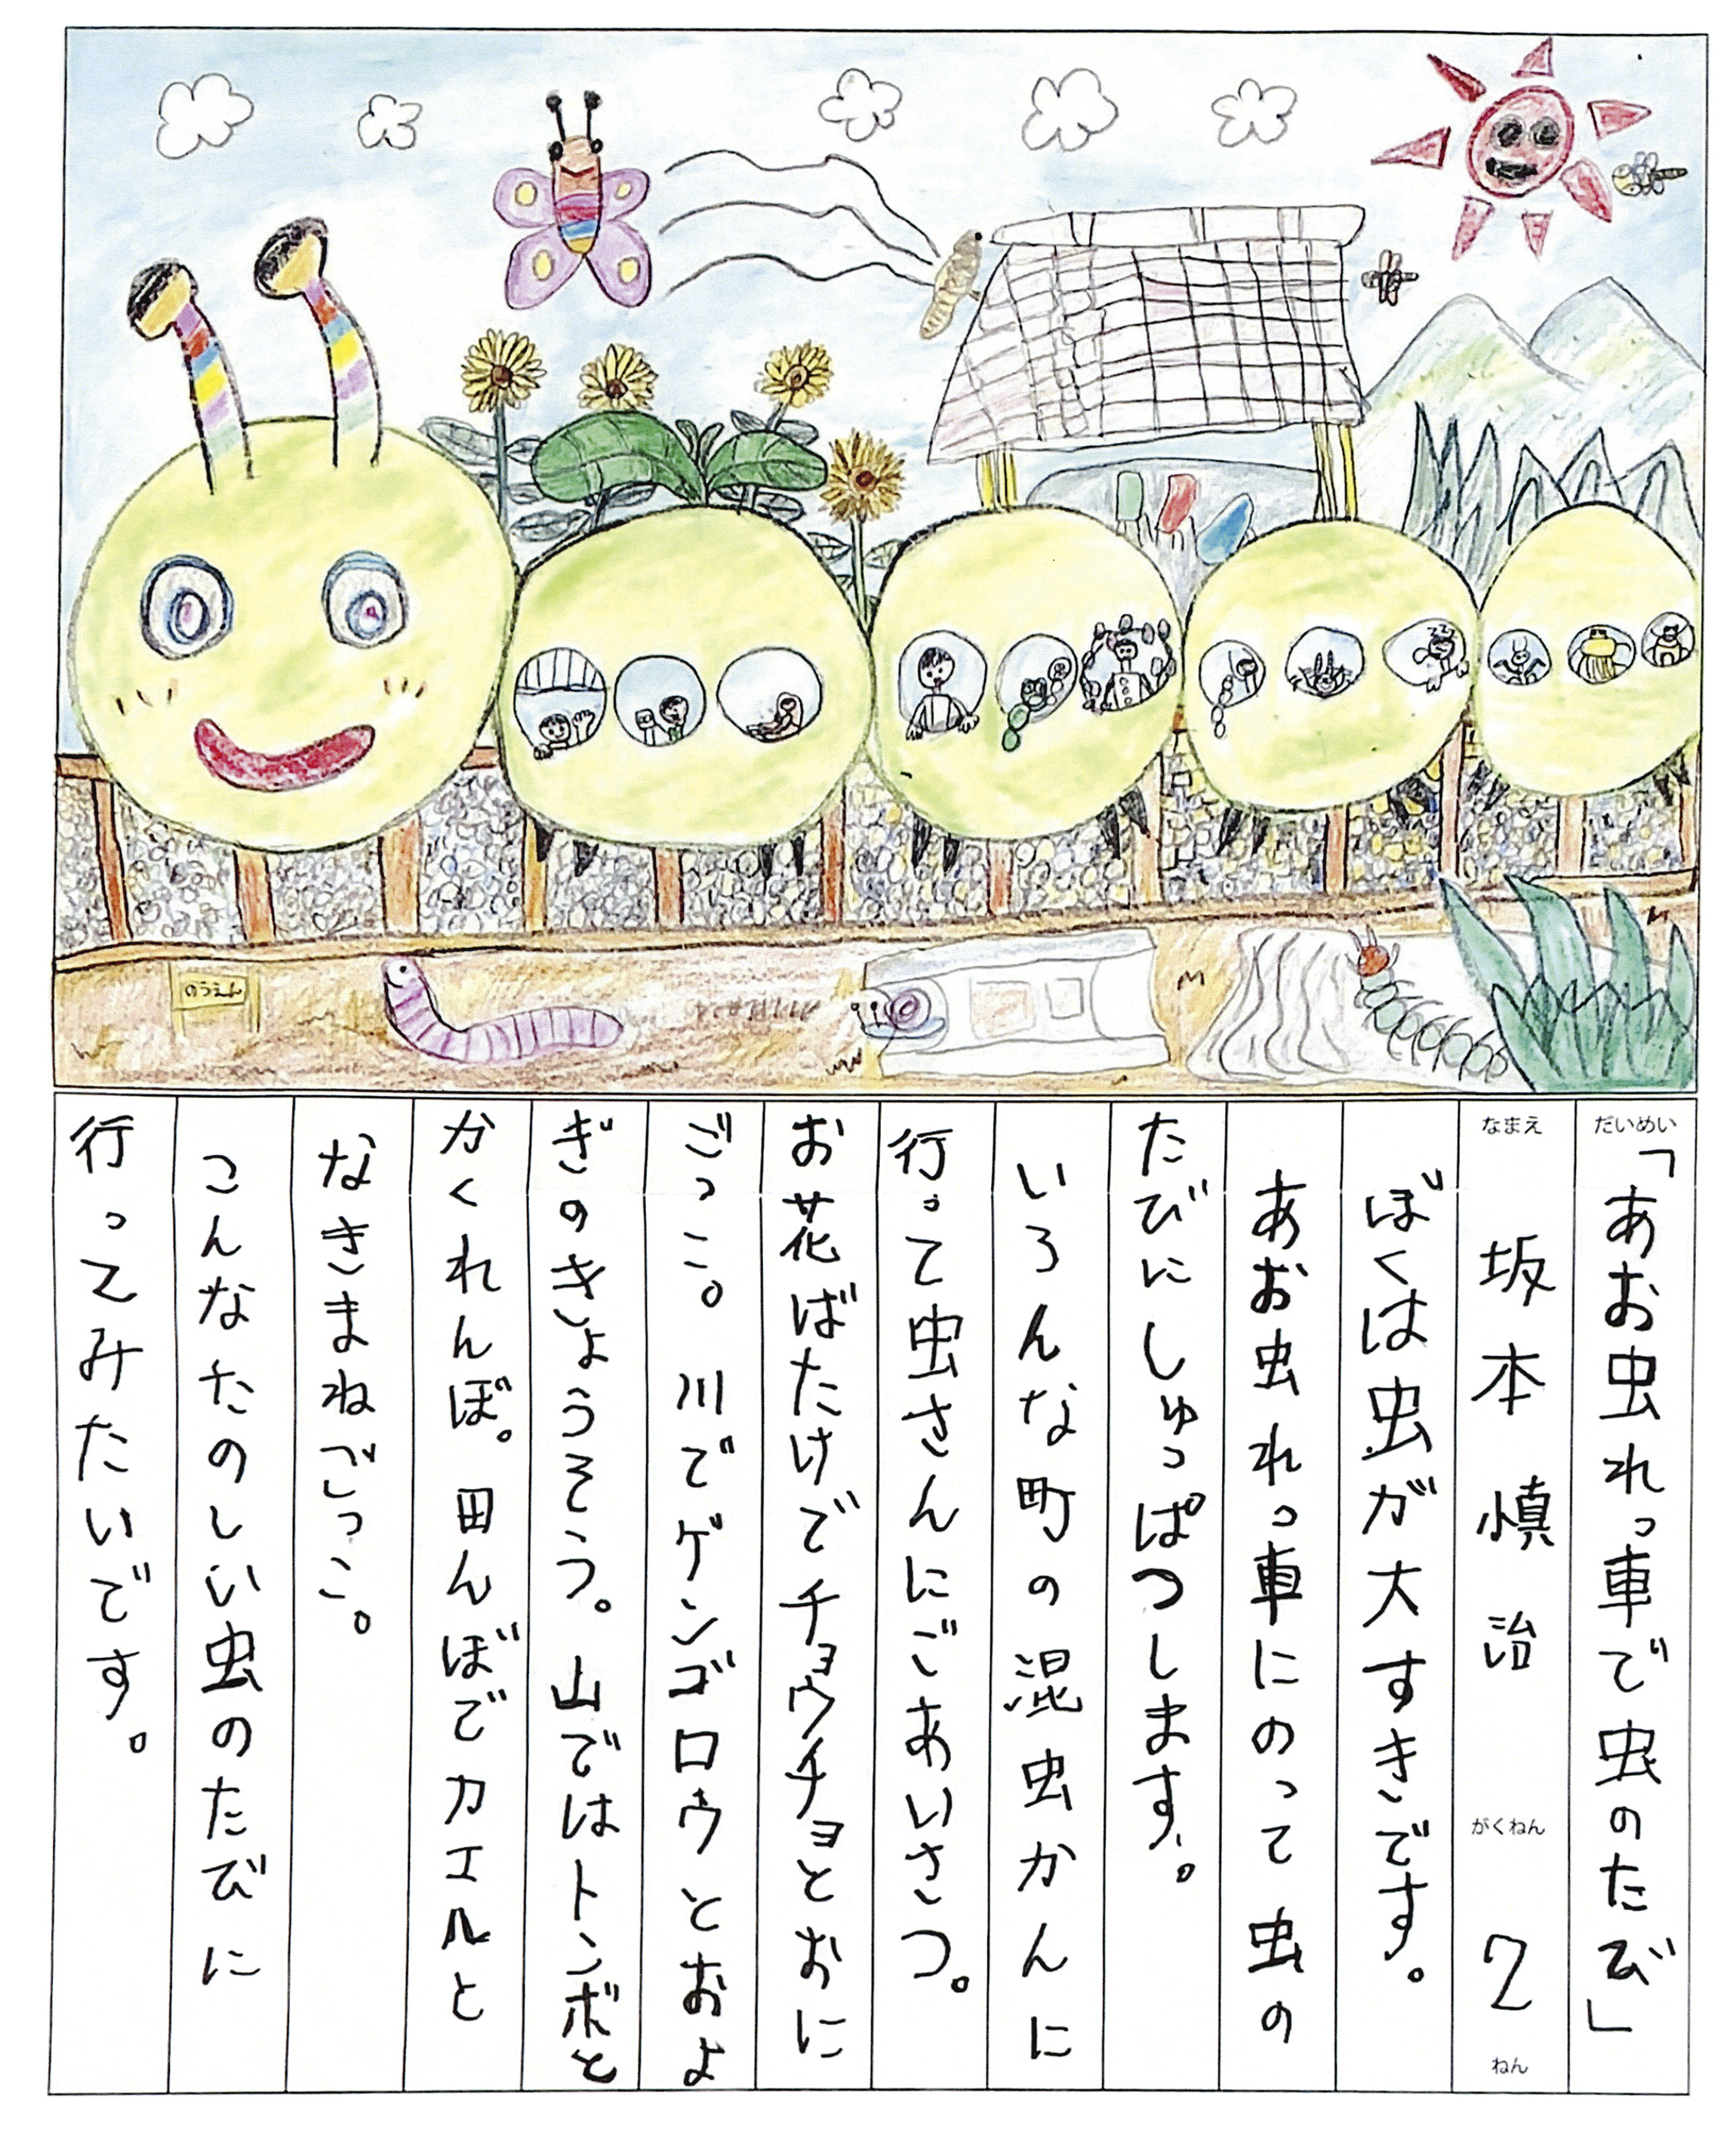 のうえん
だいめい
「あお虫れっ車で虫のたび」
なまえ
坂本 慎治
がくねん
2
ねん
ぼくは虫が大すきです。
あお虫れっ車にのって虫の
たびにしゅっぱつします。
いろんな町の混虫かんに
行って虫さんにごあいさつ。
お花ばたけでチョウチョとおに
ごっこ。川でゲンゴロウとおよ
ぎのきょうそう。山ではトンボと
かくれんぼ。田んぼでカエルと
なきまねごっこ。
こんなたのしい虫のたびに
行ってみたいです。